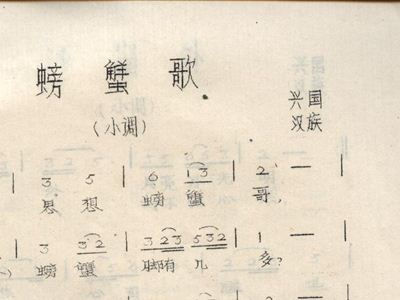 螃 蟹 歌
（小调）
兴国
汉族
| 3 5 | 6 1̇3 | 2 — |
思 想 螃 蟹 哥，
| 3 3̇2 | 3 23 532 | 1 — |
螃 蟹 脚有 几 多？